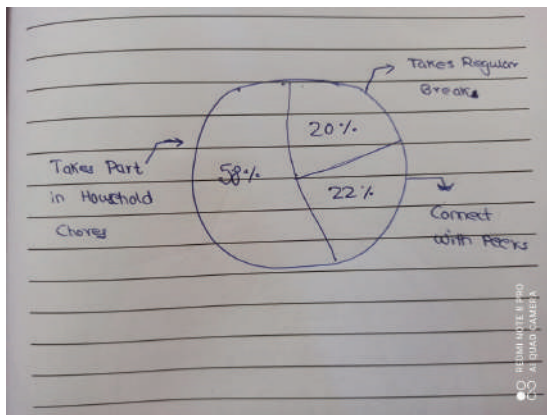 Takes Regular
Breaks
20%
58%
22%
Takes Part
in Household
Chores
Connect
With Peers
REDMI NOTE 8 PRO
AI QUAD CAMERA